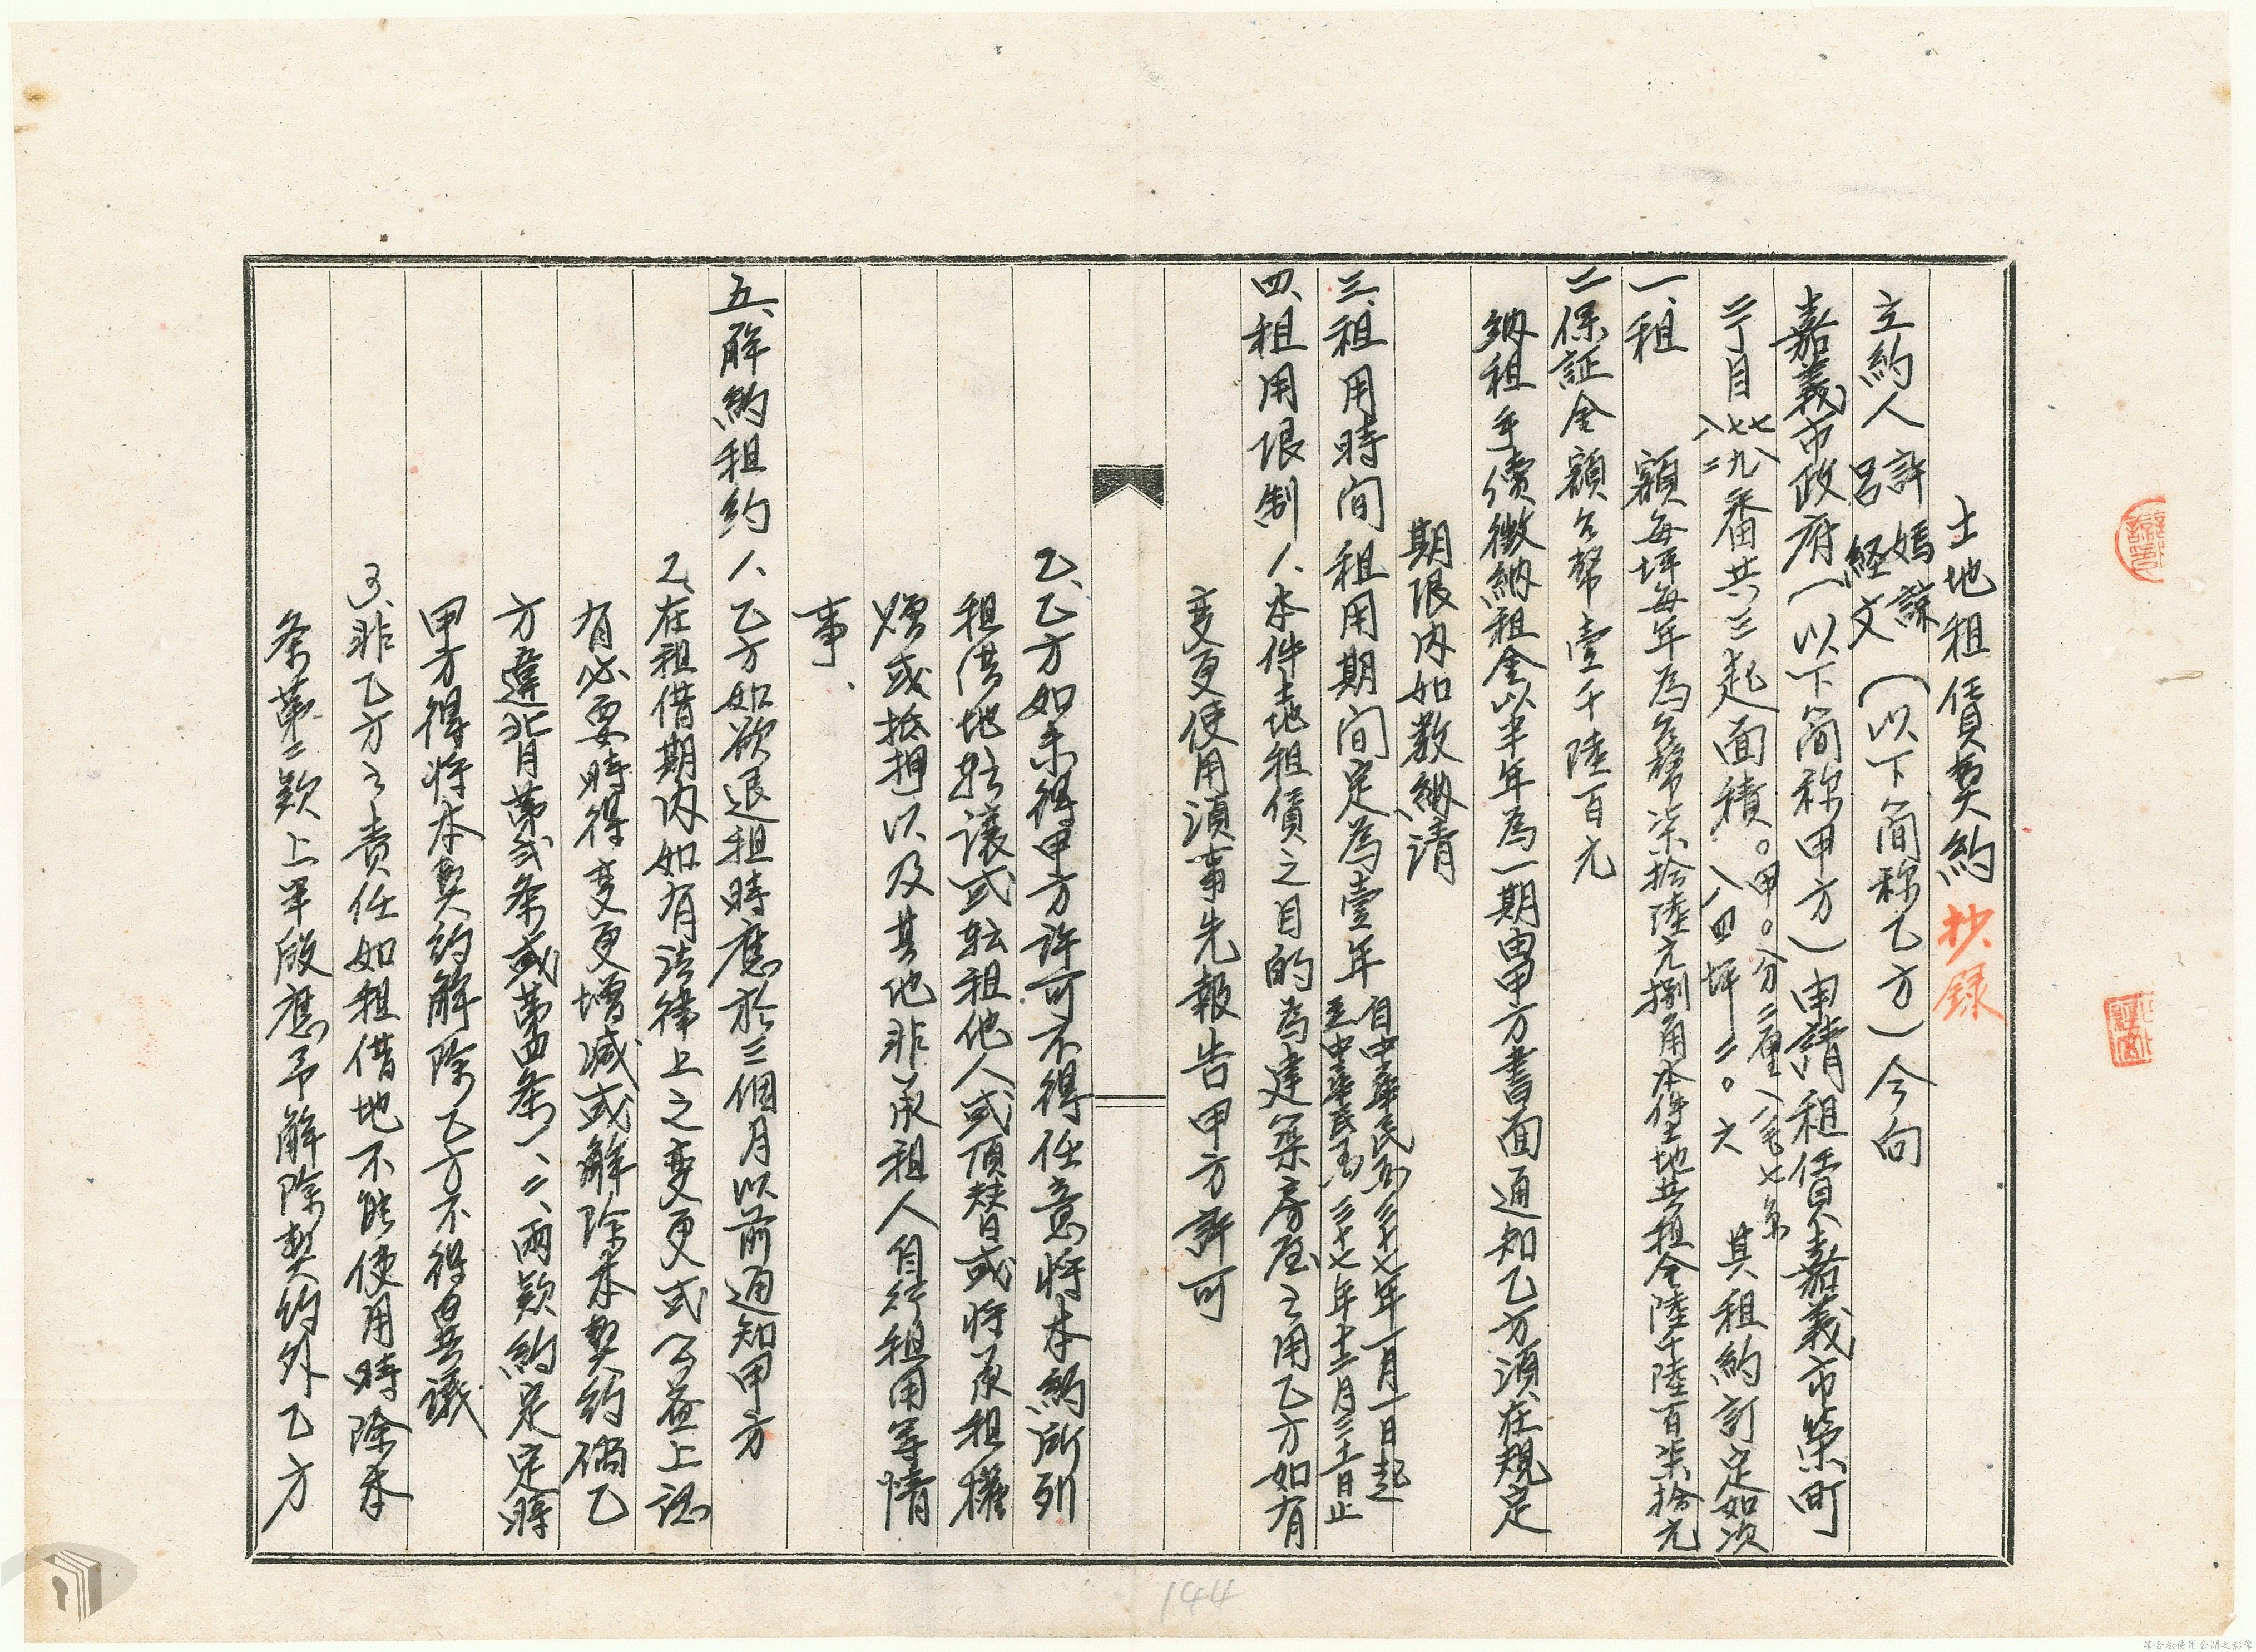 土地租賃契約 抄録
立約人 許嫣諒
呂経文 (以下簡称乙方)今向
嘉義市政府(以下简称甲方)申請租賃嘉義市榮町
二丁目七八 七九 八二番共三起面積〇甲〇分二厘八毛七糸
八四坪二〇六 其租約訂定如次
一、租 額每坪每年為台幣柒拾陸元捌角本件土地共租金陸千陸百柒拾元
二保証金額台幣壹千陸百元
納租手續徵納租金以半年為一期由甲方書面通知乙方須在規定
期限内如数納清
三、租用時间租用期间定為壹年 自中華民国三十七年一月一日起
至中華民国三十七年十二月三十一日止
四、租用限制 1、本件土地租賃之目的為建築房屋之用乙方如有
变更使用須事先報告甲方許可
2、乙方如未得甲方許可不得任意将本約所列
租借地轉讓或転租他人或頂替或将承租權
贈或抵押以及其他非承租人自行租用等情
事、
五、解約租约 1、乙方如欲退租時應於三個月以前通知甲方
2、在租借期内如有法律上之变更或公益上認
有必要時得变更增减或解除本契约倘乙
方違背第弍条或第四条一、二、兩欵約定定時
甲方得将本契约解除乙方不得異議
3、非乙方之責任如租借地不能使用時除本
条第二欵上半段應予解除契约外乙方
144
請合法使用公開之影像